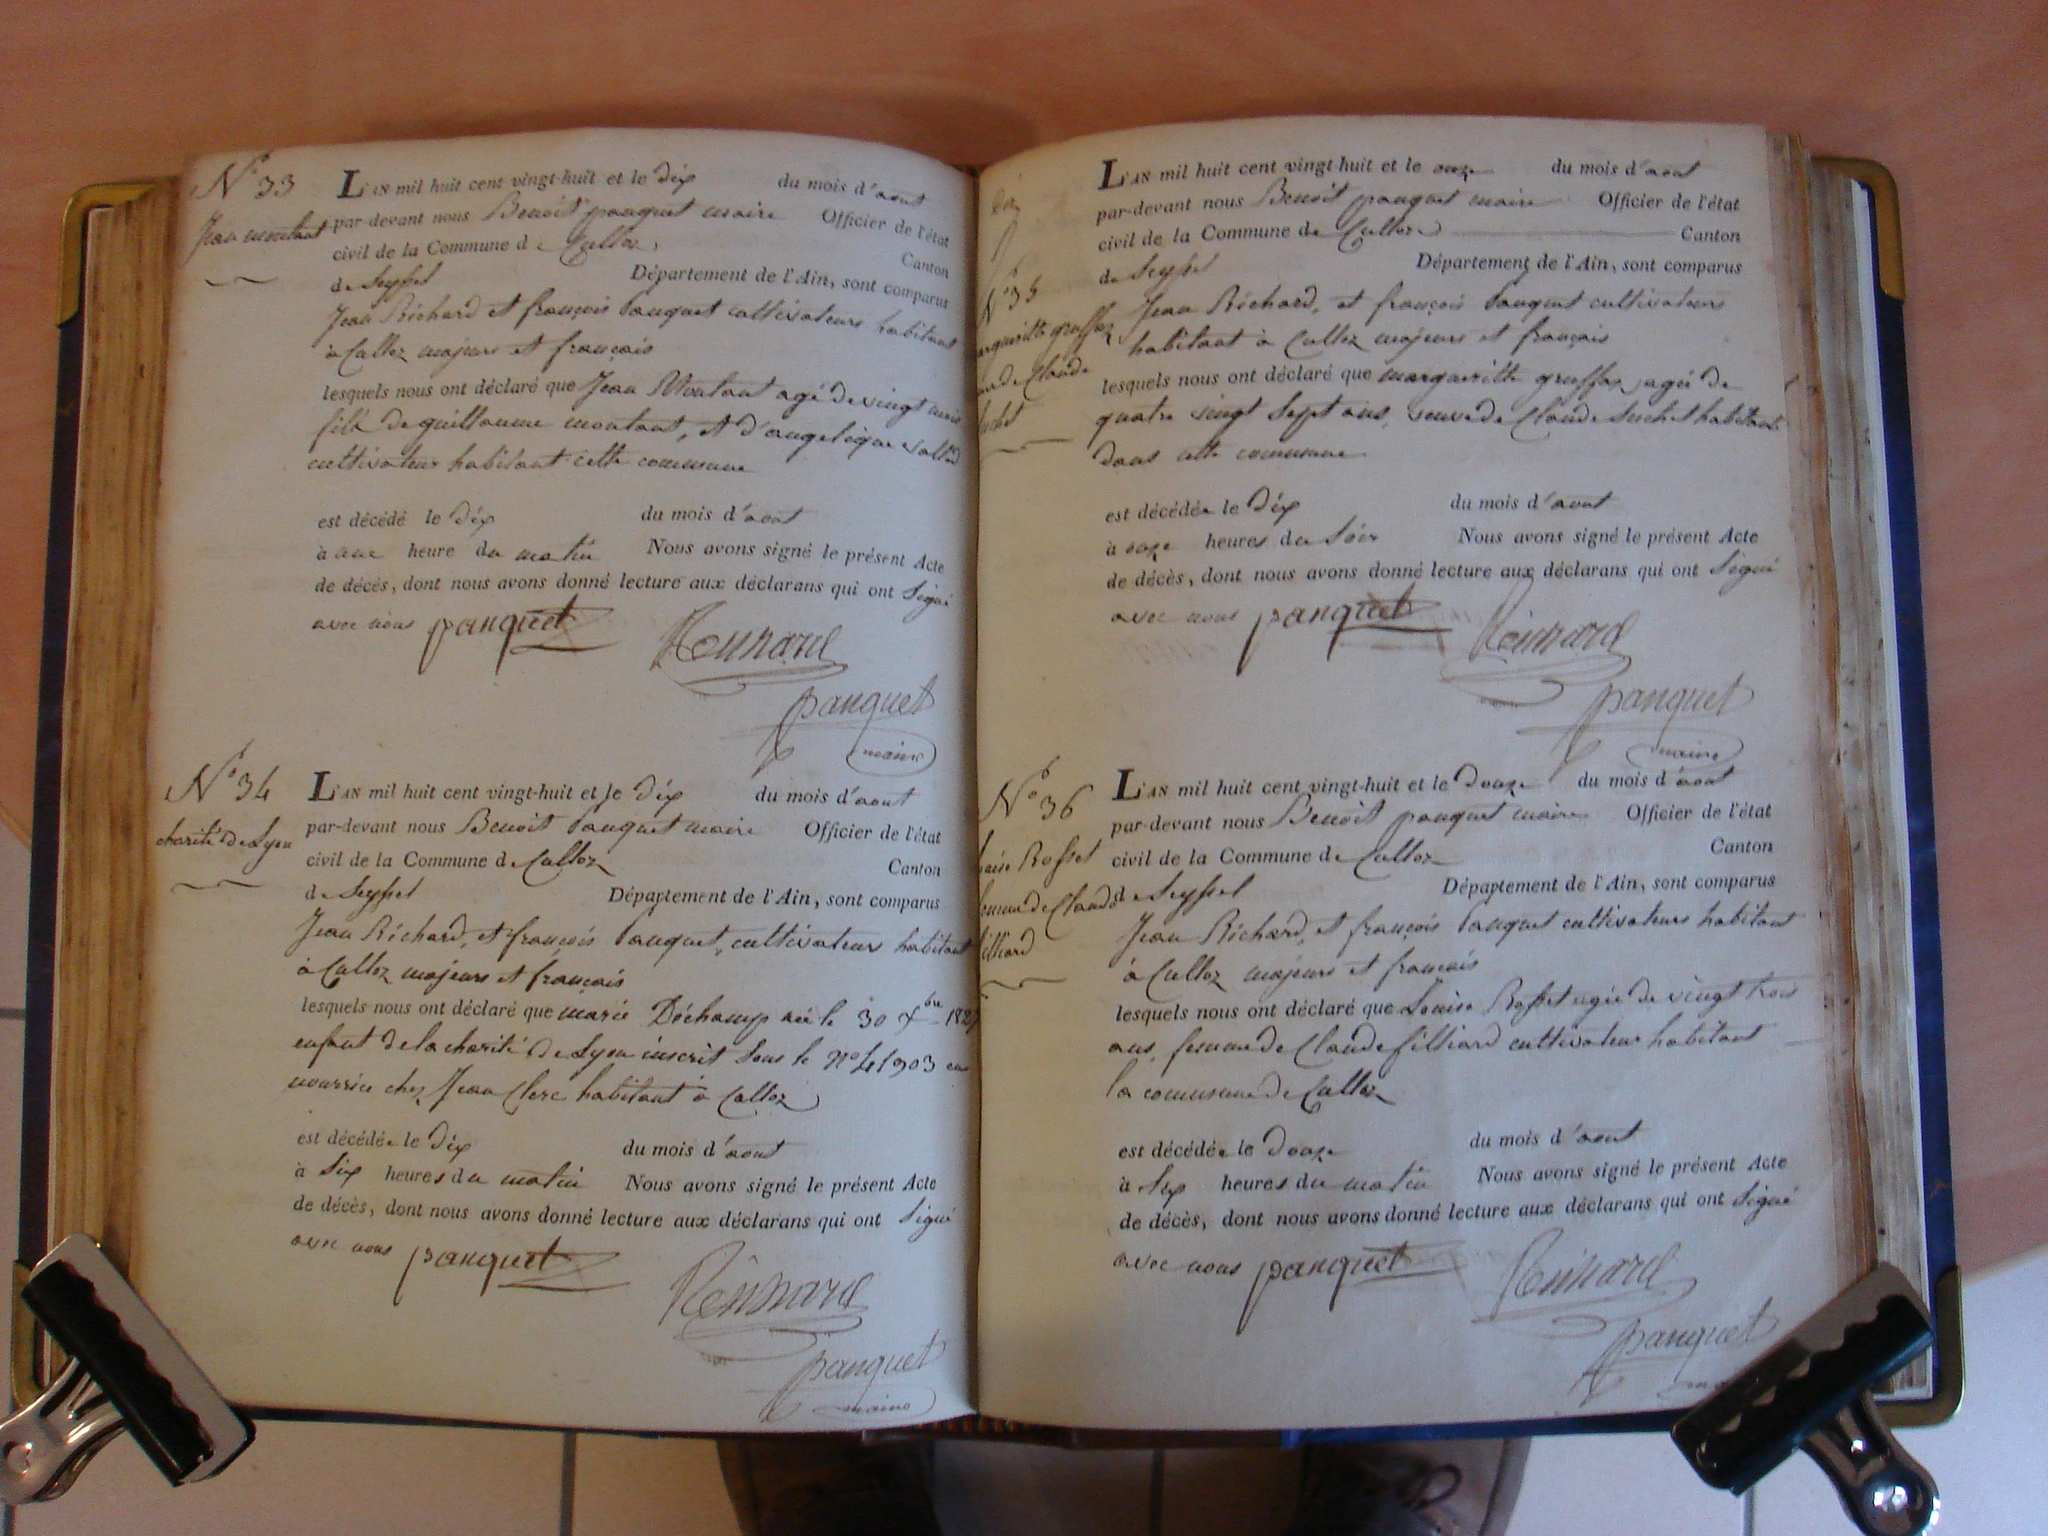 N° 33
Jean montant
L'AN mil huit cent vingt-huit et le dix du mois d'aout
par-devant nous Benoit panquet maire Officier de l'état
civil de la Commune de Culloz, Canton
de Seyssel Département de l'Ain, sont comparus
Jean Richard et françois panquet cultivateurs habitant
à Culloz majeurs et français
lesquels nous ont déclaré que Jean Montant agé de vingt mois
fils de guillaume montant, et d'angelique
cultivateur habitant cette commune
est décédé le dix du mois d'aout
à une heure du matin Nous avons signé le présent Acte
de décès, dont nous avons donné lecture aux déclarans qui ont signé
avec nous panquet
panquet
maire
N° 34
charité de Lyon
L'AN mil huit cent vingt-huit et le dix du mois d'aout
par-devant nous Benoit panquet maire Officier de l'état
civil de la Commune de Culloz Canton
de Seyssel Département de l'Ain, sont comparus
Jean Richard, et françois panquet, cultivateurs habitant
à Culloz majeurs et français
lesquels nous ont déclaré que marie Déchamp née le 30 Xbre 1827
enfant de la charité de Lyon inscrit sous le n° 41903 en
nourrice chez Jean Clerc habitant à Culloz
est décédée le dix du mois d'aout
à six heures du matin Nous avons signé le présent Acte
de décès, dont nous avons donné lecture aux déclarans qui ont signé
avec nous panquet
panquet
maire
N° 35
de Claude
L'AN mil huit cent vingt-huit et le onze du mois d'aout
par-devant nous Benoit panquet maire Officier de l'état
civil de la Commune de Culloz Canton
de Seyssel Département de l'Ain, sont comparus
Jean Richard, et françois panquet cultivateurs
habitant à Culloz majeurs et français
lesquels nous ont déclaré que margueritte gruffaz agée de
quatre vingt sept ans, veuve de Claude Suchet habitant
dans cette commune
est décédée le dix du mois d'aout
à onze heures du soir Nous avons signé le présent Acte
de décès, dont nous avons donné lecture aux déclarans qui ont signé
avec nous panquet
panquet
maire
N° 36
Rosset
femme de Claude
L'AN mil huit cent vingt-huit et le douze du mois d'aout
par-devant nous Benoit panquet maire Officier de l'état
civil de la Commune de Culloz Canton
de Seyssel Département de l'Ain, sont comparus
Jean Richard, et françois panquet cultivateurs habitant
à Culloz majeurs et français
lesquels nous ont déclaré que Louise Rosset agée de vingt trois
ans, femme de Claude filliard cultivateur habitant
la commune de Culloz
est décédée le douze du mois d'aout
à six heures du matin Nous avons signé le présent Acte
de décès, dont nous avons donné lecture aux déclarans qui ont signé
avec nous panquet
panquet